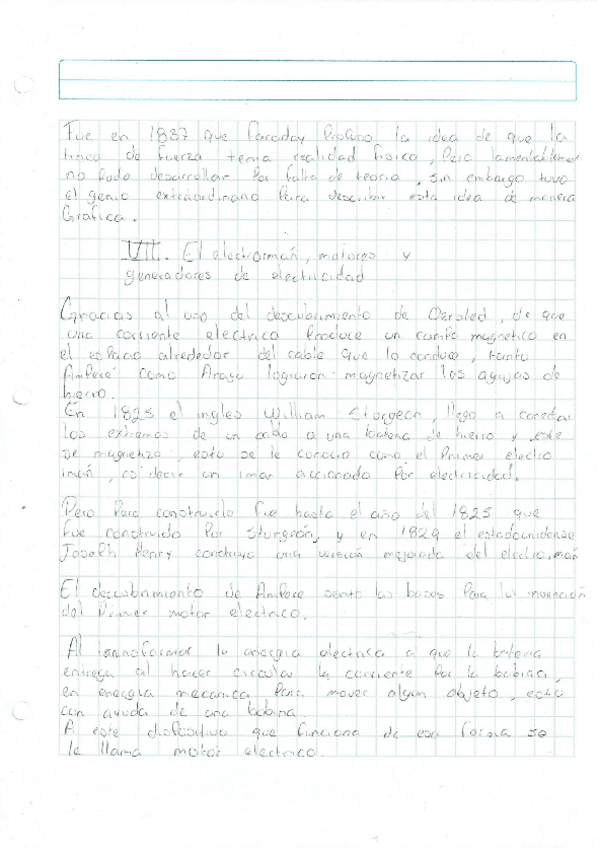 Fue en 1837 que Faraday Propuso la idea de que la
linea de fuerza tenia realidad fisica, Pero lamentablemente
no Pudo desarrollar Por falta de teoria, sin embargo tuvo
el genio extraordinario Para describir esta idea de manera
Grafica.
VII. El electroimán, motores y
generadores de electricidad
Gracias al uso del descubrimiento de Oersted, de que
una corriente electrica Produce un campo magnetico en
el espacio alrededor del cable que lo conduce, tanto
Ampere como Arago lograron magnetizar las agujas de
hierro.
En 1825 el ingles William Sturgeon, llego a conectar
los extremos de un cable a una de hierro y este
se magnetiza, esto se le conocio como el Primer electro
imán, es decir un iman accionado Por electricidad.
Pero Para construirlo fue hasta el año del 1825 que
fue construido Por Sturgeon, y en 1829 el estadounidense
Joseph Henry construyo una version mejorada del electroimán
El descubrimiento de Ampere sento las bases Para la invención
del Primer motor electrico.
Al transformar la energia electrica a que la bateria
entrega al hacer circular la corriente Por la bobina,
en energia mecanica Para mover algun objeto, esto
con ayuda de una bobina.
A este dispositivo que funciona de esa forma se
le llama motor electrico.